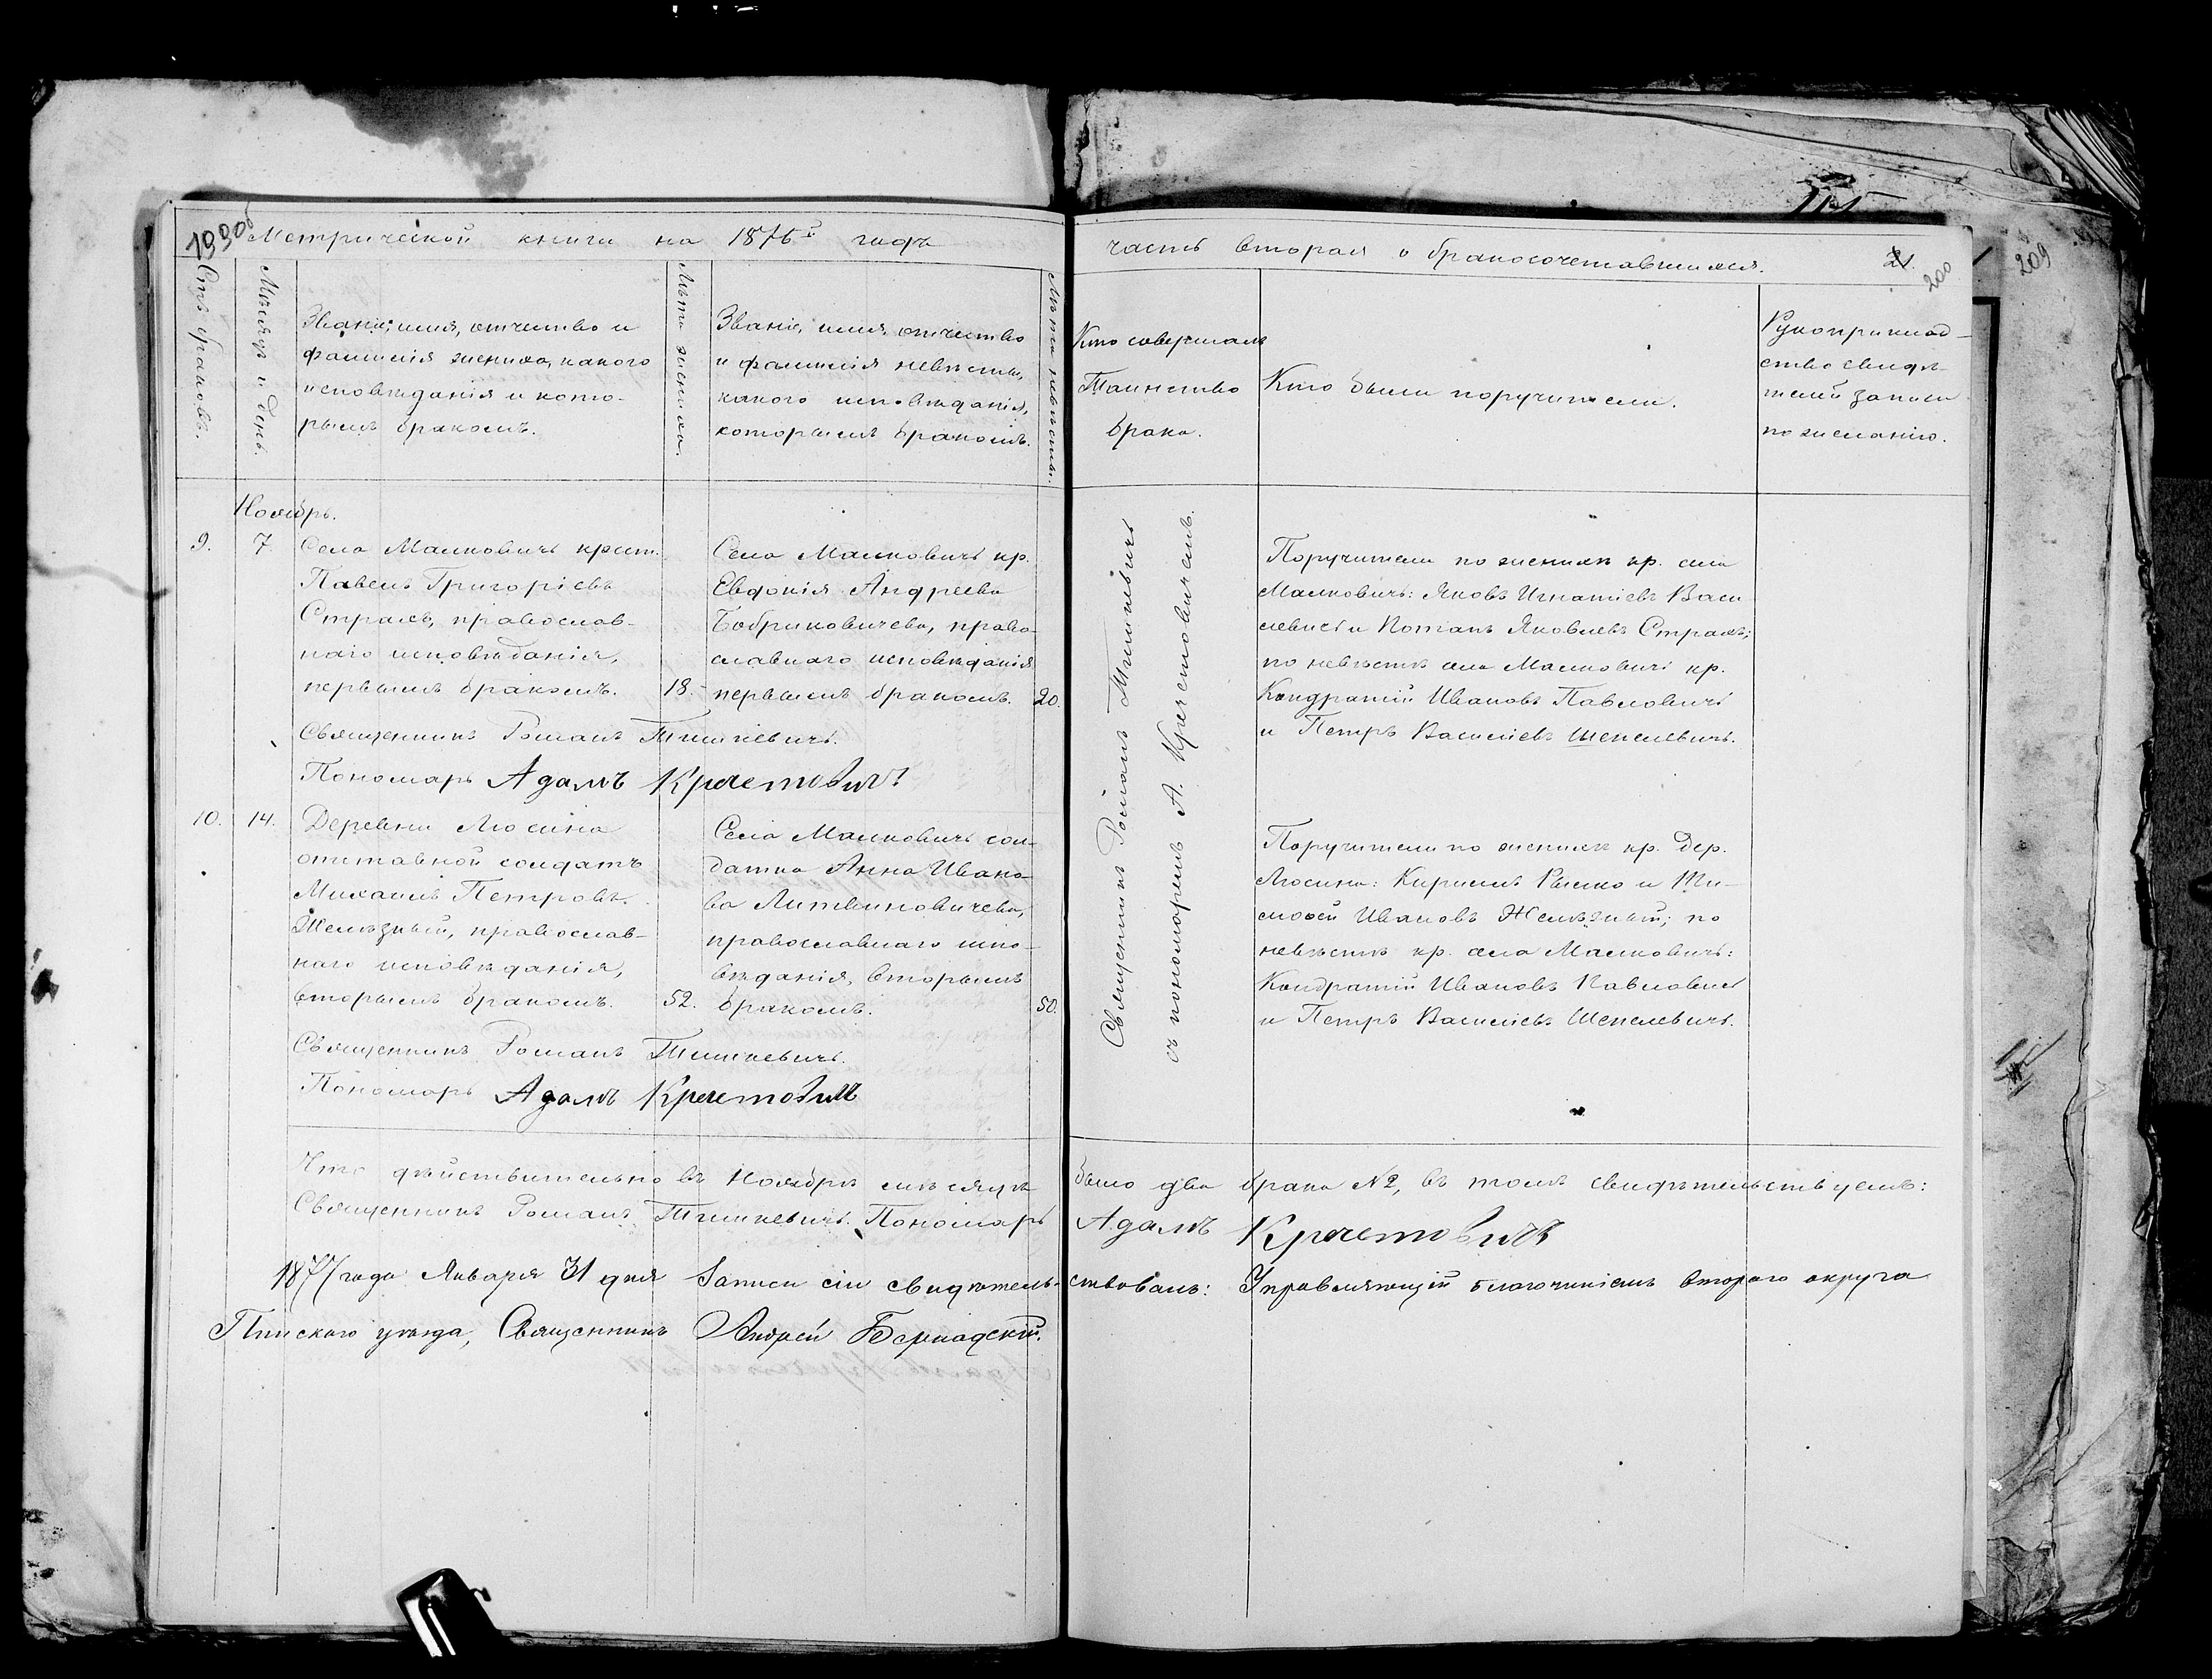 Метрической книги на 1876й годъ
часть вторая о бракосочетавшихся.
21.
200
209
Счетъ браковъ.
Мѣсяцъ и день.
Званіе, имя, отчество и
фамилія жениха, какого
исповѣданія и кото-
рымъ бракомъ.
Лѣта жениха.
Званіе, имя, отчество
и фамилія невѣсты,
какого исповѣданія,
которымъ бракомъ.
Лѣта невѣсты.
Кто совершалъ
Таинство
брака.
Кто были поручители.
Рукоприклад-
ство свидѣ-
телей записи
по желанію.
Ноябрь.
9.
7.
Села Мальковичъ крест.
Павелъ Григорієвъ
Страхъ, православ-
наго исповѣданія,
первымъ бракомъ.
18.
Села Мальковичъ кр.
Евдокія Андреева
Бобриковичева, право-
славнаго исповѣданія
первымъ бракомъ.
20.
Священникъ Романъ Тишкевичъ.
Пономарь Адамъ Кречетовичъ
Священникъ Романъ Тишкевичъ
съ пономаремъ А. Кречетовичемъ.
Поручители по женихѣ кр. села
Мальковичъ: Яковъ Игнатіевъ Васи
левичъ и Потапъ Яковлевъ Страхъ;
по невѣстѣ села Мальковичъ кр.
Кондратій Ивановъ Павловичъ
и Петръ Василіевъ Шепелевичъ.
10.
14.
Деревни Люсина
отставной солдатъ
Михаилъ Петровъ
Желѣзный, православ-
наго исповѣданія,
вторымъ бракомъ.
52.
Села Мальковичъ сол-
датка Анна Ивано-
ва Литвиновичева,
православнаго испо-
вѣданія, вторымъ
бракомъ.
50.
Священникъ Романъ Тишкевичъ.
Пономарь Адамъ Кречетовичъ
Поручители по женихѣ кр. дер.
Люсина: Кирилъ Рышко и Ти-
моѳей Ивановъ Желѣзный; по
невѣстѣ кр. села Мальковичъ:
Кондратій Ивановъ Павловичъ
и Петръ Василіевъ Шепелевичъ.
Что дѣйствительно въ Ноябрѣ мѣсяцѣ было два брака №2, въ томъ свидѣтельствуемъ:
Священникъ Романъ Тишкевичъ. Пономарь Адамъ Кречетовичъ
1877 года Января 31 дня Записи сіи свидѣтельствовалъ: Управляющій благочиніемъ втораго округа
Пинскаго уѣзда, Священникъ Андрей Бернадскій.